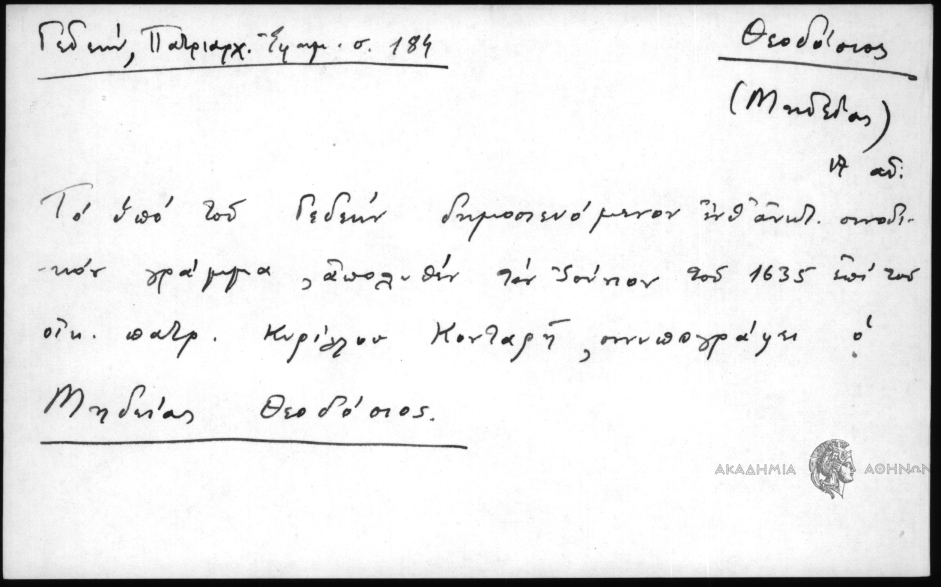 Γεδεών, Πατριαρχ. Ἐφημ. σ. 184
Θεοδόσιος
(Μηδείας)
Τό ὑπό τοῦ Γεδεών δημοσιευόμενον ἐνθ' ἀνωτ. συνοδι-
-κόν γράμμα, ἀπολυθέν τόν Ἰούνιον τοῦ 1635 ἐπί τοῦ
οἰκ. πατρ. Κυρίλλου Κονταρῆ, συνυπογράφει ὁ
Μηδείας Θεοδόσιος.
ΑΚΑΔΗΜΙΑ ΑΘΗΝΩΝ